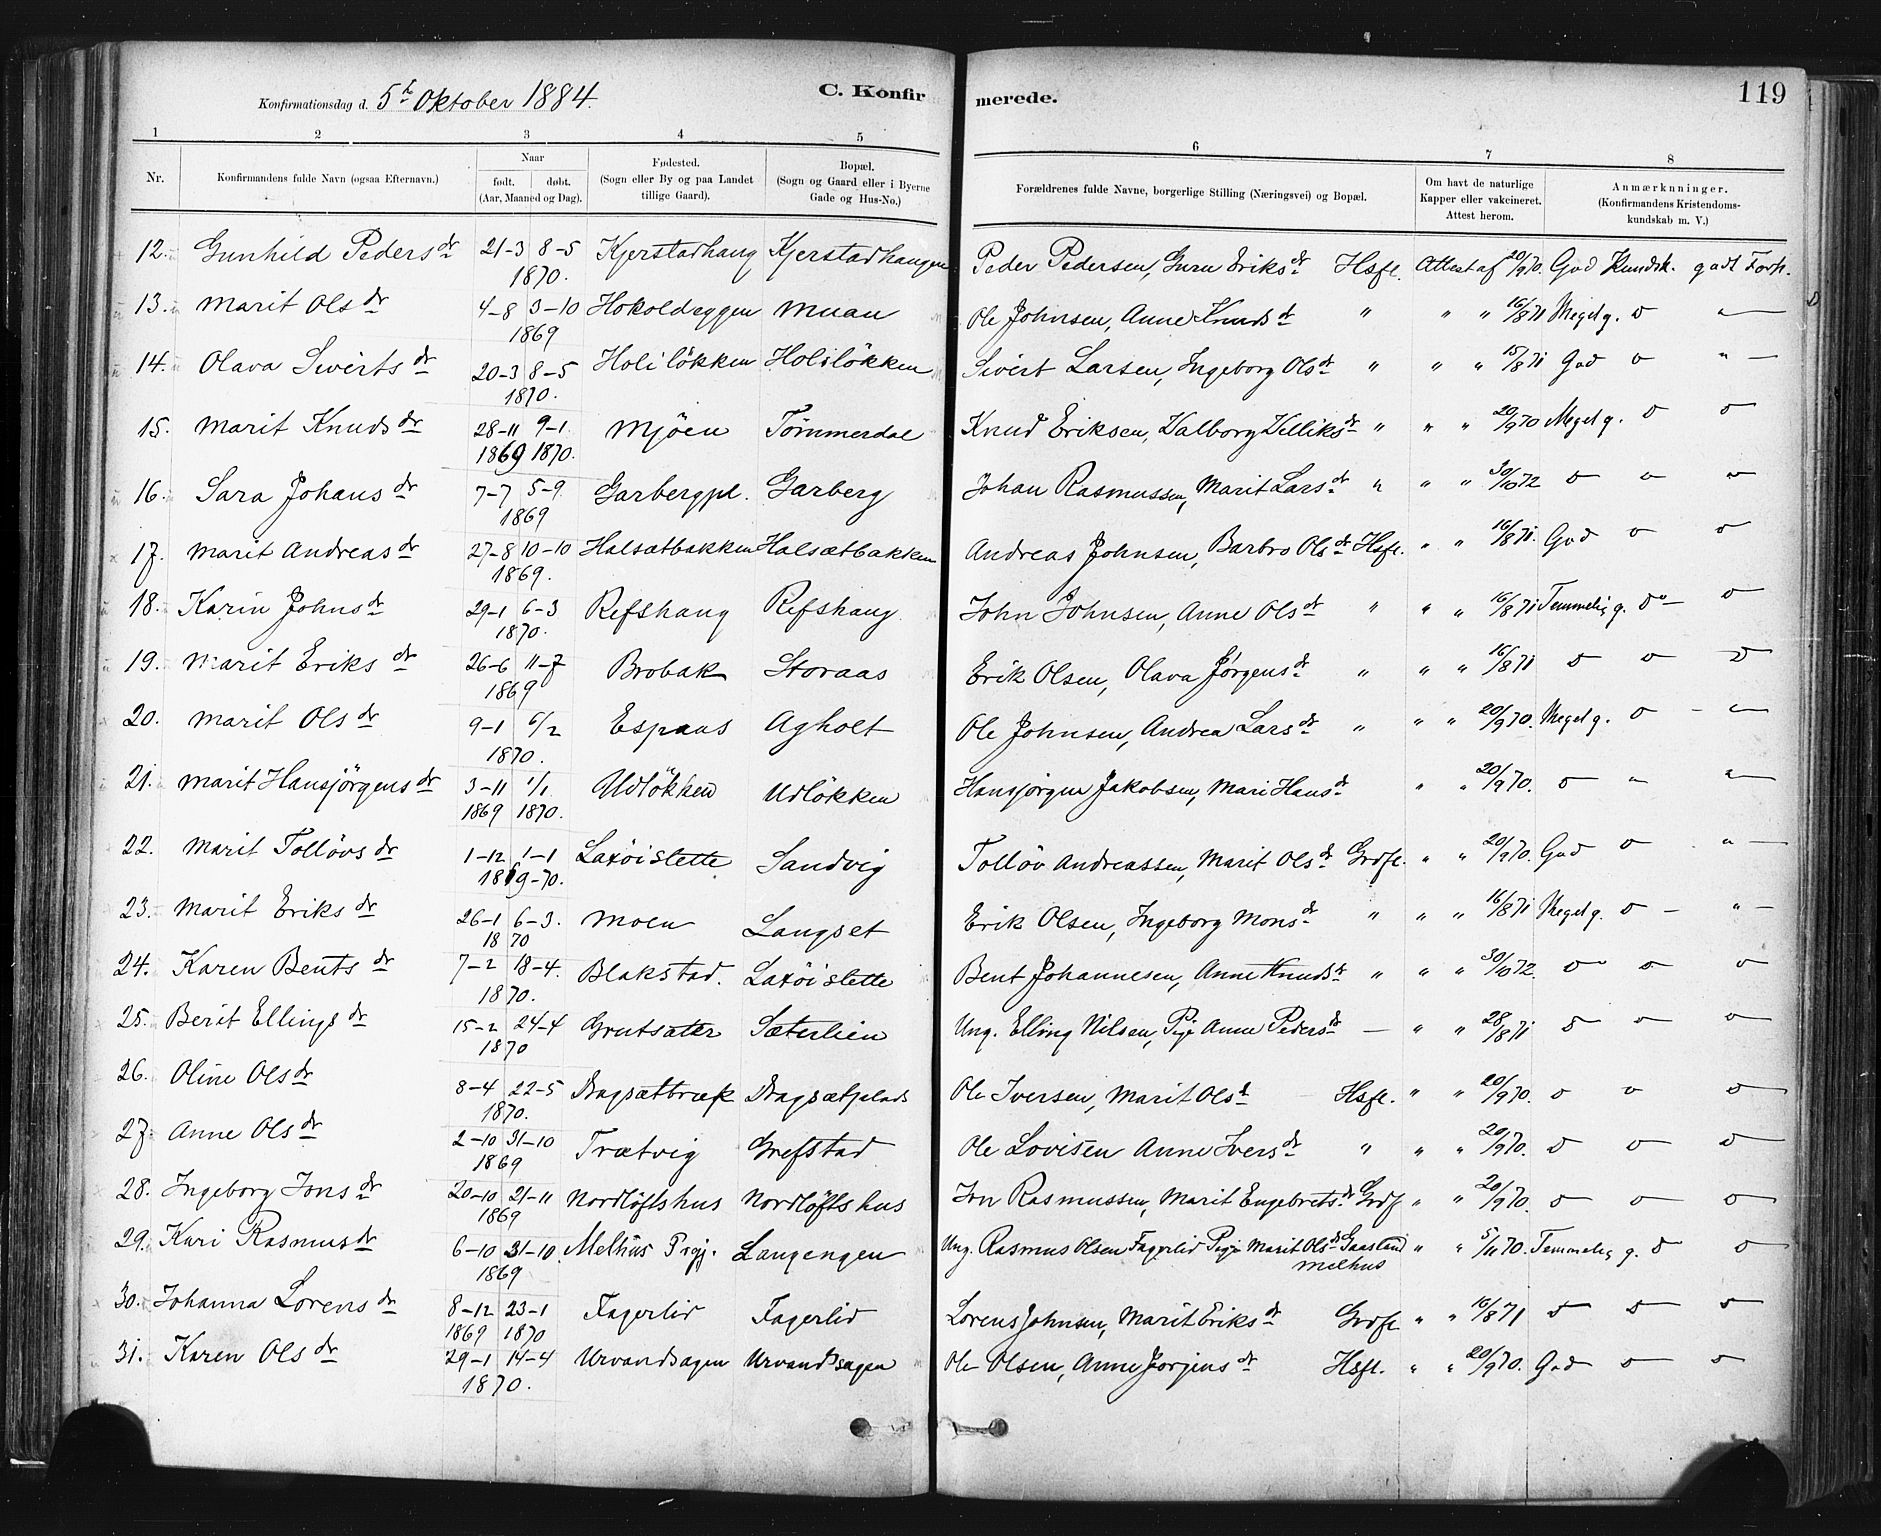 Konfirmationsdag d. 5t Oktober 1884. C. Konfirmerede. 119
1 2 3 4 5 6 7 8
Nr. Konfirmandens fulde Navn (ogsaa Efternavn.) Naar født. døbt. (Aar, Maaned og Dag). Fødested. (Sogn eller By og paa Landet tillige Gaard). Bopæl. (Sogn og Gaard eller i Byerne Gade og Hus-No.) Forældrenes fulde Navne, borgerlige Stilling (Næringsvei) og Bopæl. Om havt de naturlige Kapper eller vakcineret. Attest herom. Anmærknninger. (Konfirmandens Kristendomskundskab m. V.)
12. Gunhild Peders dr 21-3 8-5 1870. Kjerstadhaug Kjerstadhaugen Peder Pedersen, Guru Eriks dr Hsfl. Attest af 20/9 70. God Kundsk. godt Forh.
13. Marit Ols dr 4-8 3-10 1869 Hokoldryggen Muan Ole Johnsen, Anne Knuds dr " " " 16/8 71 Meget g. o
14. Olava Siverts dr 20-3 8-5 1870. Holsløkken Holsløkken Sivert Larsen, Ingeborg Ols dr " " " 15/8 71 God o " —
15. Marit Knuds dr 28-11 9-1 1869 1870. Mjöen Tömmerdal Knud Eriksen, Valborg Velliks dr " " " 20/9 70 Meget g. o o
16. Sara Johans dr 7-7 5-9 1869 Garbergpl. Garberg Johan Rasmussen, Marit Lars dr " " " 30/10 72 o o o
17. Marit Andreas dr 27-8 10-10 1869. Halsætbakken Halsætbakken Andreas Johnsen, Barbro Ols dr Hsfl. " " 16/8 71. God o o
18. Karin Johns dr 29-1 6-3 1870. Refshaug Refshaug John Johnsen, Anne Ols dr " " " 16/8 71 Temmelig g. do — o
19. Marit Eriks dr 26-6 11-7 1869 Brobak Storaas Erik Olsen, Olava Jørgens dr " " " 16/8 71 o o o
20. Marit Ols dr 9-1 6/2 1870. Espaas Agholt Ole Johnsen, Andrea Lars dr " " " 20/9 70. Meget g. o
21. Marit Hansjörgens dr 3-11 1/1 1869 1870. Udlökken Udlökken Hansjörgen Jakobsen, Mari Hans dr " " 20/9 70. o " "
22. Marit Tollövs dr 1-12 1-1 1869-70. Laxöislette Sandvig Tollöv Andreassen, Marit Ols dr Grdfl. " " 20/9 70. God o " —
23. Marit Eriks dr 26-1 6-3. 1870 Moen Langset Erik Olsen, Ingeborg Mons dr " " " 16/8 71 Meget g. o — " —
24. Karen Bents dr 7-2 18-4. 1870. Blakstad. Laxöislette Bent Johannesen, Anne Knuds dr " " " 30/10 72. o o o
25. Berit Ellings dr 15-2 24-4 1870 Grutsæter Sæterlien Ung. Elling Nilsen, Pige Anne Peders dr — " " 28/8 71 o o o
26. Oline Ols dr 8-4 22-5 1870. Dragsætbræk Dragsætplads Ole Iversen, Marit Ols dr Hsfl. " " 20/9 70. o o o
27. Anne Ols dr 2-10 31-10 1869 Trætvig Grefstad Ole Lovisen Anne Ivers dr " " " 20/9 70. o o o
28. Ingeborg Jons dr 20-10 21-11 1869 Nordløftshus Nordløftshus Jon Rasmussen, Marit Engebrets dr Grdf " " 20/9 70. o o o
29. Kari Rasmus dr 6-10 31-10. 1869 Melhus Prgj. Langengen Ung. Rasmus Olsen Fagerlid Pige Marit Ols dr Gaasland Melhus " " 5/11 70. Temmelig g. o o
30. Johanna Lorens dr 8-12 23-1 1869 1870 Fagerlid Fagerlid Lorens Johnsen, Marit Eriks dr Grdfl " " 16/8 71 o o o
31. Karen Ols dr 29-1 14-4 1870. Urvandsagen Urvandsagen Ole Olsen, Anne Jorgens dr Hsfl. " " 20/9 70. God o o